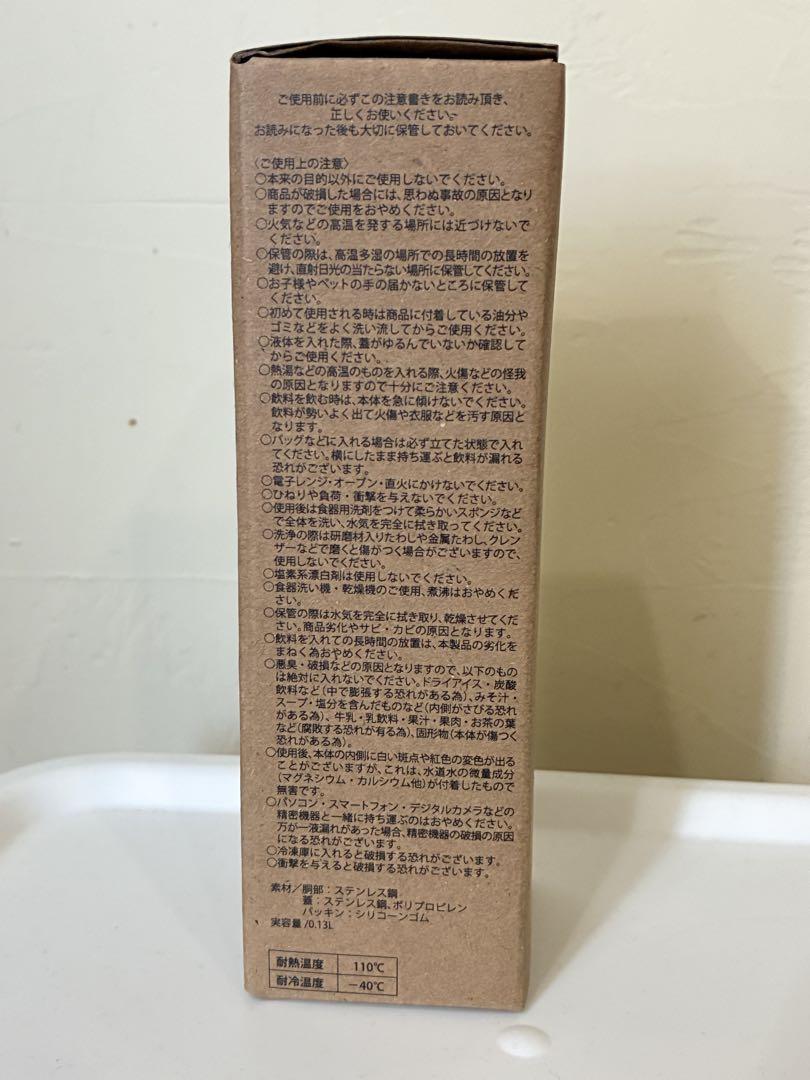 ご使用前に必ずこの注意書きをお読み頂き、
正しくお使いください。
お読みになった後も大切に保管しておいてください。
〈ご使用上の注意〉
○本来の目的以外にご使用しないでください。
○商品が破損した場合には、思わぬ事故の原因となり
ますのでご使用をおやめください。
○火気などの高温を発する場所には近づけないで
ください。
○保管の際は、高温多湿の場所での長時間の放置を
避け、直射日光の当たらない場所に保管してください。
○お子様やペットの手の届かないところに保管して
ください。
○初めて使用される時は商品に付着している油分や
ゴミなどをよく洗い流してからご使用ください。
○液体を入れた際、蓋がゆるんでいないか確認して
からご使用ください。
○熱湯などの高温のものを入れる際、火傷などの怪我
の原因となりますので十分にご注意ください。
○飲料を飲む時は、本体を急に傾けないでください。
飲料が勢いよく出て火傷や衣服などを汚す原因と
なります。
○バッグなどに入れる場合は必ず立てた状態で入れ
てください。横にしたまま持ち運ぶと飲料が漏れる
恐れがございます。
○電子レンジ・オーブン・直火にかけないでください。
○ひねりや負荷・衝撃を与えないでください。
○使用後は食器用洗剤をつけて柔らかいスポンジなど
で全体を洗い、水気を完全に拭き取ってください。
○洗浄の際は研磨材入りたわしや金属たわし、クレン
ザーなどで磨くと傷がつく場合がございますので、
使用しないでください。
○塩素系漂白剤は使用しないでください。
○食器洗い機・乾燥機のご使用、煮沸はおやめくだ
さい。
○保管の際は水気を完全に拭き取り、乾燥させてくだ
さい。商品劣化やサビ・カビの原因となります。
○飲料を入れての長時間の放置は、本製品の劣化を
まねく為おやめください。
○悪臭・破損などの原因となりますので、以下のもの
は絶対に入れないでください。ドライアイス・炭酸
飲料など(中で膨張する恐れがある為)、みそ汁・
スープ・塩分を含んだものなど(内側がさびる恐れ
がある為)、牛乳・乳飲料・果汁・果肉・お茶の葉
など(腐敗する恐れが有る為)、固形物(本体が傷つく
恐れがある為)。
○使用後、本体の内側に白い斑点や紅色の変色が出る
ことがございますが、これは、水道水の微量成分
(マグネシウム・カルシウム他)が付着したもので
無害です。
○パソコン・スマートフォン・デジタルカメラなどの
精密機器と一緒に持ち運ぶのはおやめください。
万が一液漏れがあった場合、精密機器の破損の原因
になる恐れがございます。
○冷凍庫に入れると破損する恐れがございます。
○衝撃を与えると破損する恐れがございます。
素材/胴部:ステンレス鋼
蓋:ステンレス鋼、ポリプロピレン
パッキン:シリコーンゴム
実容量/0.13L
耐熱温度 110℃
耐冷温度 −40℃